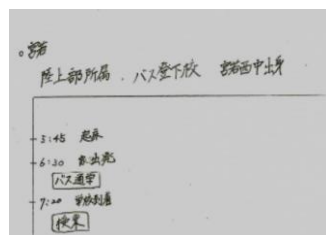 。宮若
陸上部所属 、バス登下校 宮若西中出身
5:45 起床
6:30 家出発
バス通学
7:20 学校到着
授業